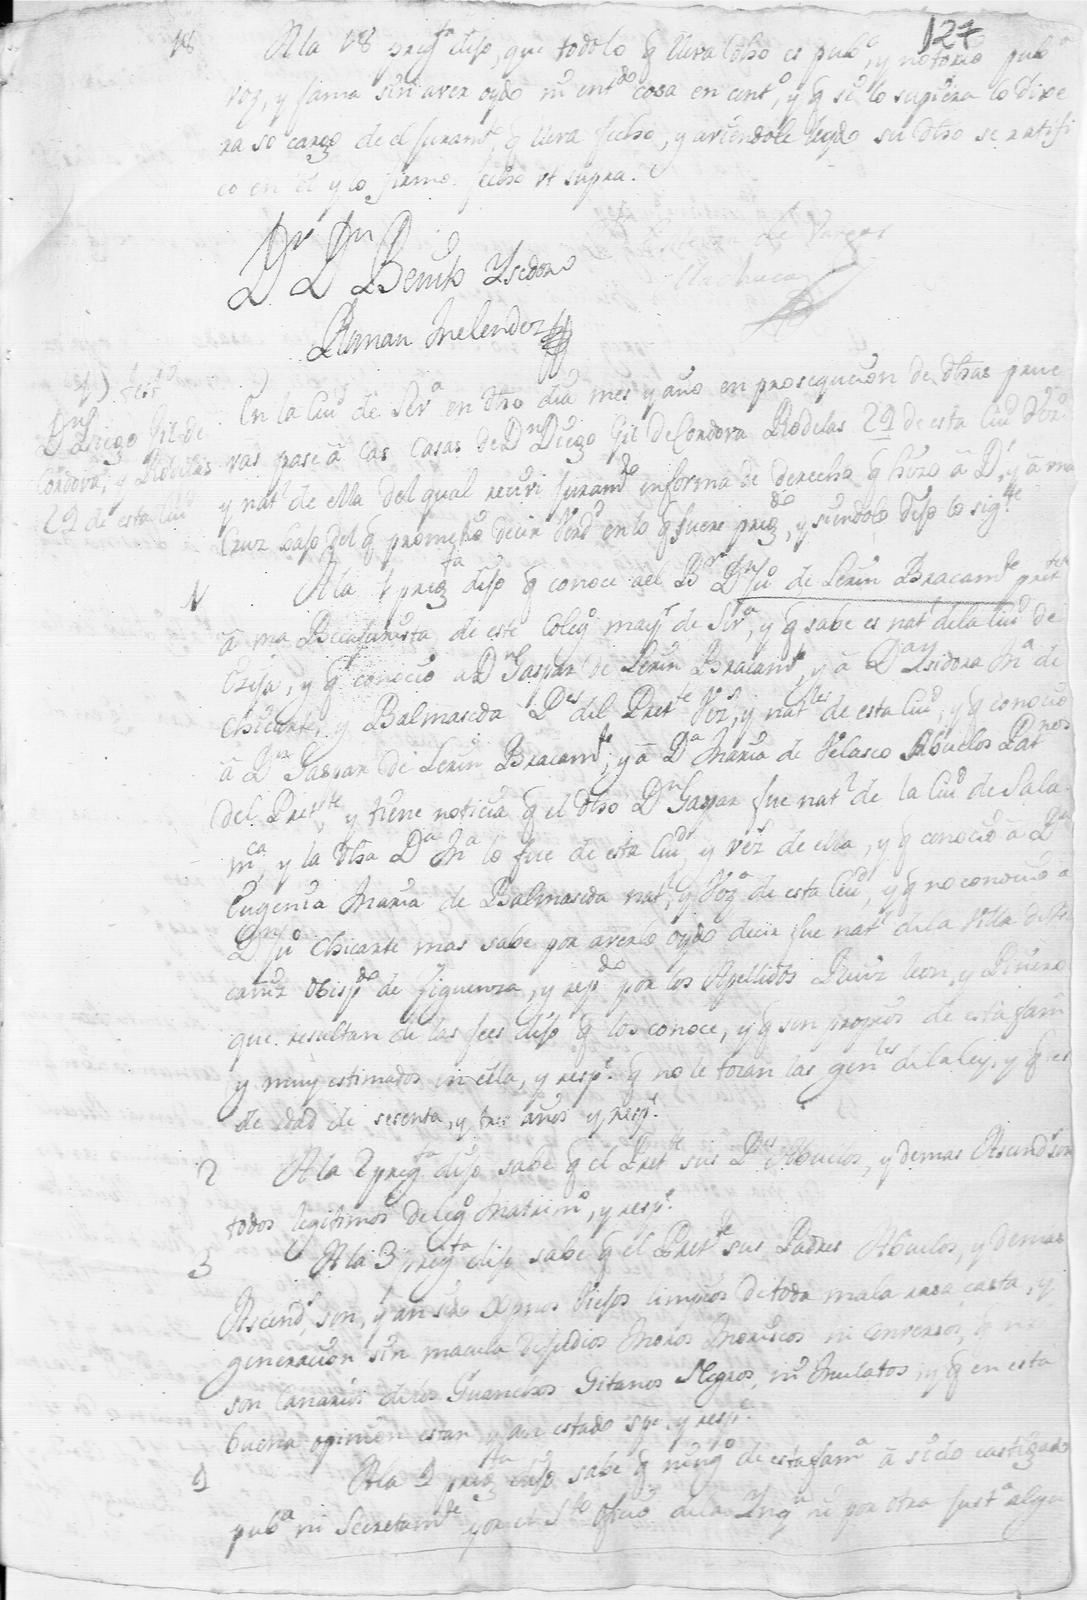 127
18 A la 18 preg.ta dijo, que todo lo q lleva dho es pub.co, y notorio pub.a
voz, y fama sin aver oydo ni ent.do cosa en cont.o, y q si lo supiera lo dixe
ra so cargo de el juram.to q lleva fecho, y aviendole leydo su dho se ratifi
co en el y lo firmo. fecho ut supra.
de Vargas
Machuca
D.r D.n Benito Ysidoro
Roman Melendez
test.o
D.n Diego Gil de
Cordova, y Rodelas
29 de esta Ciud
En la Ciud de Sev.a en dho dia mes y año en prosequcion de dhas prue
vas pase â las casas de D.n Diego Gil de Cordova Rodelas 29 de esta Ciud Vez.o
y nat.l de ella del qual recivi juram.to en forma de derecho q hizo â D.s y â una
Cruz bajo del q prometio decir Verd en lo q fuere preg.do, y siendolo dijo lo sig.te
1 A la 1 preg.ta dijo q conoce a el B.r D.n Ju.o de Lerin Bracam.te pret.te
â una Beca Jurista de este Coleg.o may.r de Sev.a, y q sabe es nat.l de la Ciud de
Ezija, y q conocio a D.n Gaspar de Lerin Bracam.te, y â D.a Ysidora M.a de
Chicante, y Balmaseda P.es del Pret.te Vez.s, y nat.les de esta Ciud, y q conocio
â D.n Gaspar de Lerin Bracam.te, y â D.a Maria de Velasco Abuelos Pat.nos
del Pret.te, y tiene noticia q el dho D.n Gaspar fue nat.l de la Ciud de Sala
m.ca, y la dha D.a M.a lo fue de esta Ciud, y vez.a de ella, y q conocio â D.a
Eugenia Maria de Balmaseda nat.l, y Vez.a de esta Ciud, y q no conocio â
D.n Ju.o Chicante mas sabe por averlo oydo decir fue nat.l de la Villa de
Obisp.do de Siguenza, y resp.de por los Apellidos Ruiz Leon, y Piñero
que resultan de las fees dijo q los conoce, y q son propios de esta fam.a
y muy estimados en ella, y resp.e q no le tocan las gen.les de la ley, y q es
de edad de sesenta, y tres años y resp.e
2 A la 2 preg.ta dijo sabe q el Pret.te sus P.es Abuelos, y demas Ascend.s son
todos legitimos de leg.o Matrim.o, y resp.e
3 A la 3 preg.ta dijo sabe q el Pret.te sus Padres Abuelos, y demas
Ascend.s son, y an sido Xpnos Viejos limpios de toda mala raza, casta, y
generacion sin macula de Judios Moros Moriscos ni conversos, q ni
son Canarios de los Guanchos Gitanos Negros, ni Mulatos, y q en esta
buena opinion estan y an estado spe. y resp.e
4 A la 4 preg.ta dijo sabe q ning.o de esta fam.a â sido castigado
pub.a ni Secretam.te por el S.to Oficio de la Inq.n ni por otra just.a algu